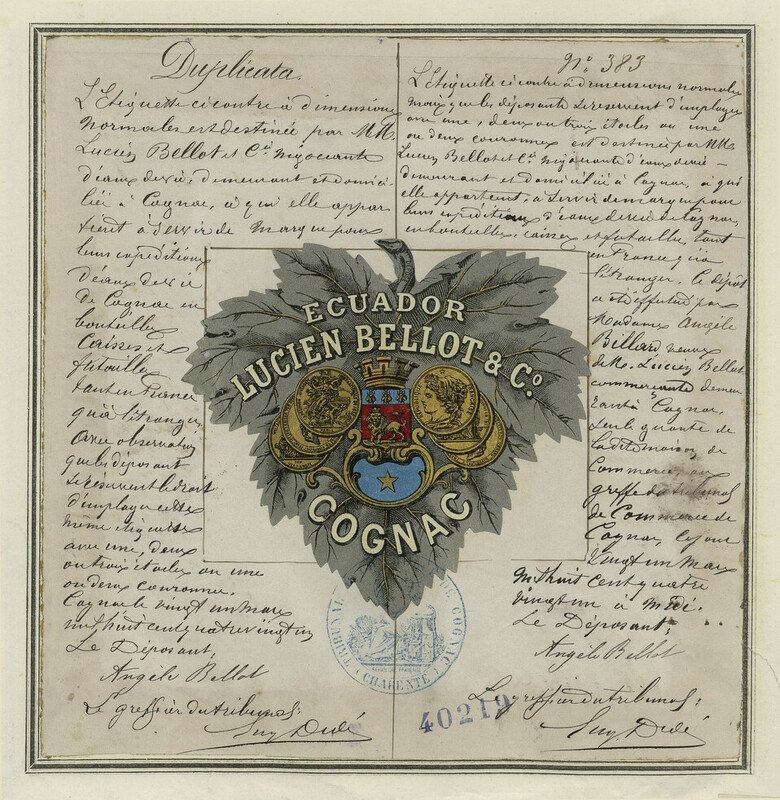 Duplicata.
L'Etiquette ci contre à dimensions
normales est destinée par MM.
Lucien Bellot et Cie négociants
d'eaux de vie, demeurant et domici-
liée à Cognac, à qui elle appar
tient à servir de marque pour
leurs expéditions
d'eaux de vie
de Cognac en
bouteilles
Caisses et
futailles
tant en France
qu'à l'étranger,
avec observation
que les déposants
se réservent le droit
d'employer cette
même étiquette
avec une, deux
ou trois étoiles ou une
ou deux couronnes.
Cognac le vingt un Mars
mil huit cent quatre vingt un
Le Déposant,
Angèle Bellot
Le greffier du tribunal:
Eug. Dedé
No. 383
L'Etiquette ci contre à dimensions normales
mais que les déposants se réservent d'employer
avec une, deux ou trois étoiles ou une
ou deux couronnes est destinée par MM.
Lucien Bellot et Cie négociants d'eaux de vie –
demeurant et domiciliée à Cognac, à qui
elle appartient, à servir de marque pour
leurs expéditions d'eaux de vie de Cognac,
en bouteilles, caisses et futailles, tant
en France qu'à
l'étranger. Ce dépôt
a été effectué par
Madame Angèle
Billard, veuve
de M. Lucien Bellot
commerçante demeu
rant à Cognac,
seule gérante de
la dite maison de
Commerce, au
greffe du tribunal
de Commerce de
Cognac, ce jour
vingt un Mars
mil huit cent quatre
vingt un à midi.
Le Déposant,
Angèle Bellot
Le greffier du tribunal:
Eug. Dedé
ECUADOR
LUCIEN BELLOT & Co.
COGNAC
TRIBUNAL DE COGNAC
(CHARENTE)
40219